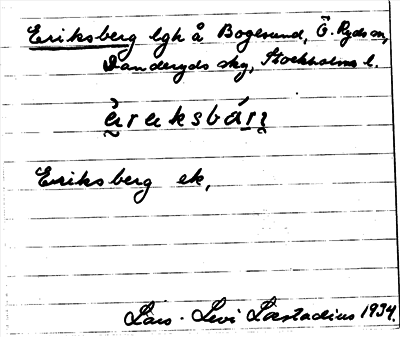 Eriksberg lgh å Bogesund, Ö. Ryds sn,
Danderyds skg, Stockholms l.
Eriksberg ek,
Lars-Levi Læstadius 1934.